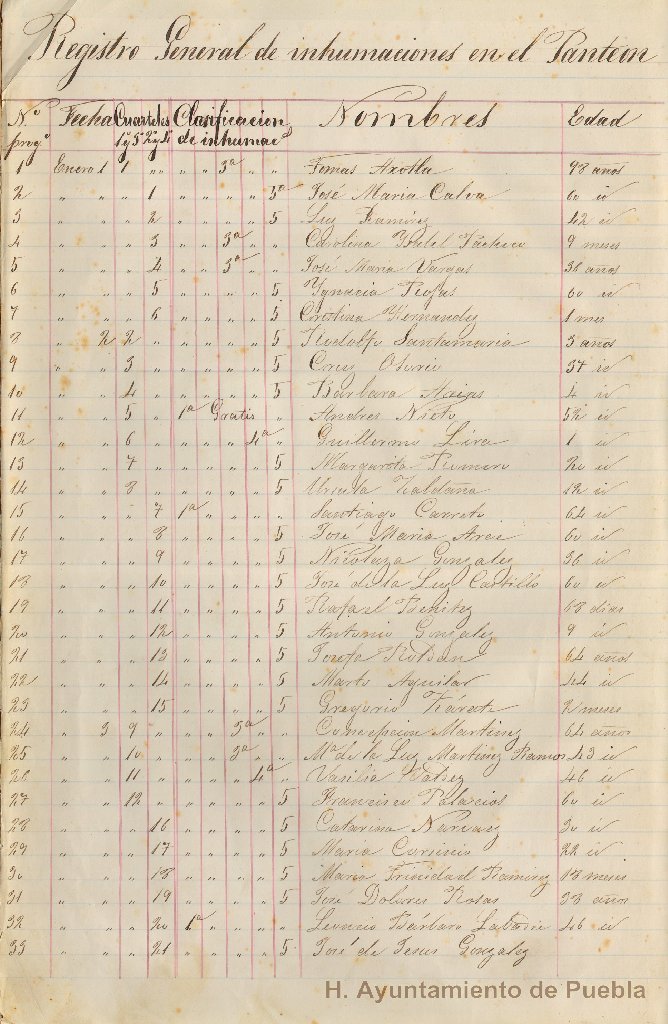 Registro General de inhumaciones en el Panteon
Nº progº Fecha Cuarteles 1y3 2y4 Clasificacion de inhumacn Nombres Edad
1 Enero 1 1 " " " 3ª " " Tomas Axotla 98 años
2 " " " 1 " " " " 5ª José Maria Calva 60 id
3 " " " 2 " " " " 5 Luz Ramirez 42 id
4 " " " 3 " " 3ª " " Carolina Pacheco 9 meses
5 " " " 4 " " 3ª " " José Maria Vargas 38 años
6 " " " 5 " " " " 5 Ygnacia Rojas 60 id
7 " " " 6 " " " " 5 Cristina Hernandez 1 mes
8 " 2 2 " " " " 5 Rodolfo Santamaria 3 años
9 " " 3 " " " " 5 Cruz Osorio 37 id
10 " " 4 " " " " 5 Barbara Arias 4 id
11 " " 5 " 1ª Gratis " " Andres Nieto 52 id
12 " " 6 " " " " 4ª " Guillermo Lira 1 id
13 " " 7 " " " " 5 Margarita Romero 20 id
14 " " 8 " " " " 5 Ursula Saldaña 12 id
15 " " " 7 1ª " " " " Santiago Carreto 64 id
16 " " " 8 " " " " 5 José Maria Arce 60 id
17 " " " 9 " " " " 5 Nicolaza Gonzalez 36 id
18 " " " 10 " " " " 5 José de la Luz Castillo 60 id
19 " " " 11 " " " " 5 Rafael Benitez 68 dias
20 " " " 12 " " " " 5 Antonio Gonzalez 9 id
21 " " " 13 " " " " 5 Josefa Roldan 64 años
22 " " " 14 " " " " 5 Marta Aguilar 44 id
23 " " " 15 " " " " 5 Gregorio 2 meses
24 " 3 9 " " " 3ª " " Concepcion Martinez 64 años
25 " " 10 " " " 3ª " " Mª de la Luz Martinez Ramos 43 id
26 " " 11 " " " " 4ª " Vasilia 46 id
27 " " 12 " " " " " 5 Francisco Palacios 60 id
28 " " " 16 " " " " 5 Catarina Narvaez 30 id
29 " " " 17 " " " " 5 Maria 22 id
30 " " " 18 " " " " 5 Maria Trinidad Ramirez 18 meses
31 " " " 19 " " " " 5 José Dolores Rosas 38 años
32 " " " 20 1ª " " " " Leoncio Bárbaro 46 id
33 " " " 21 " " " " 5 José de Jesus Gonzalez
H. Ayuntamiento de Puebla